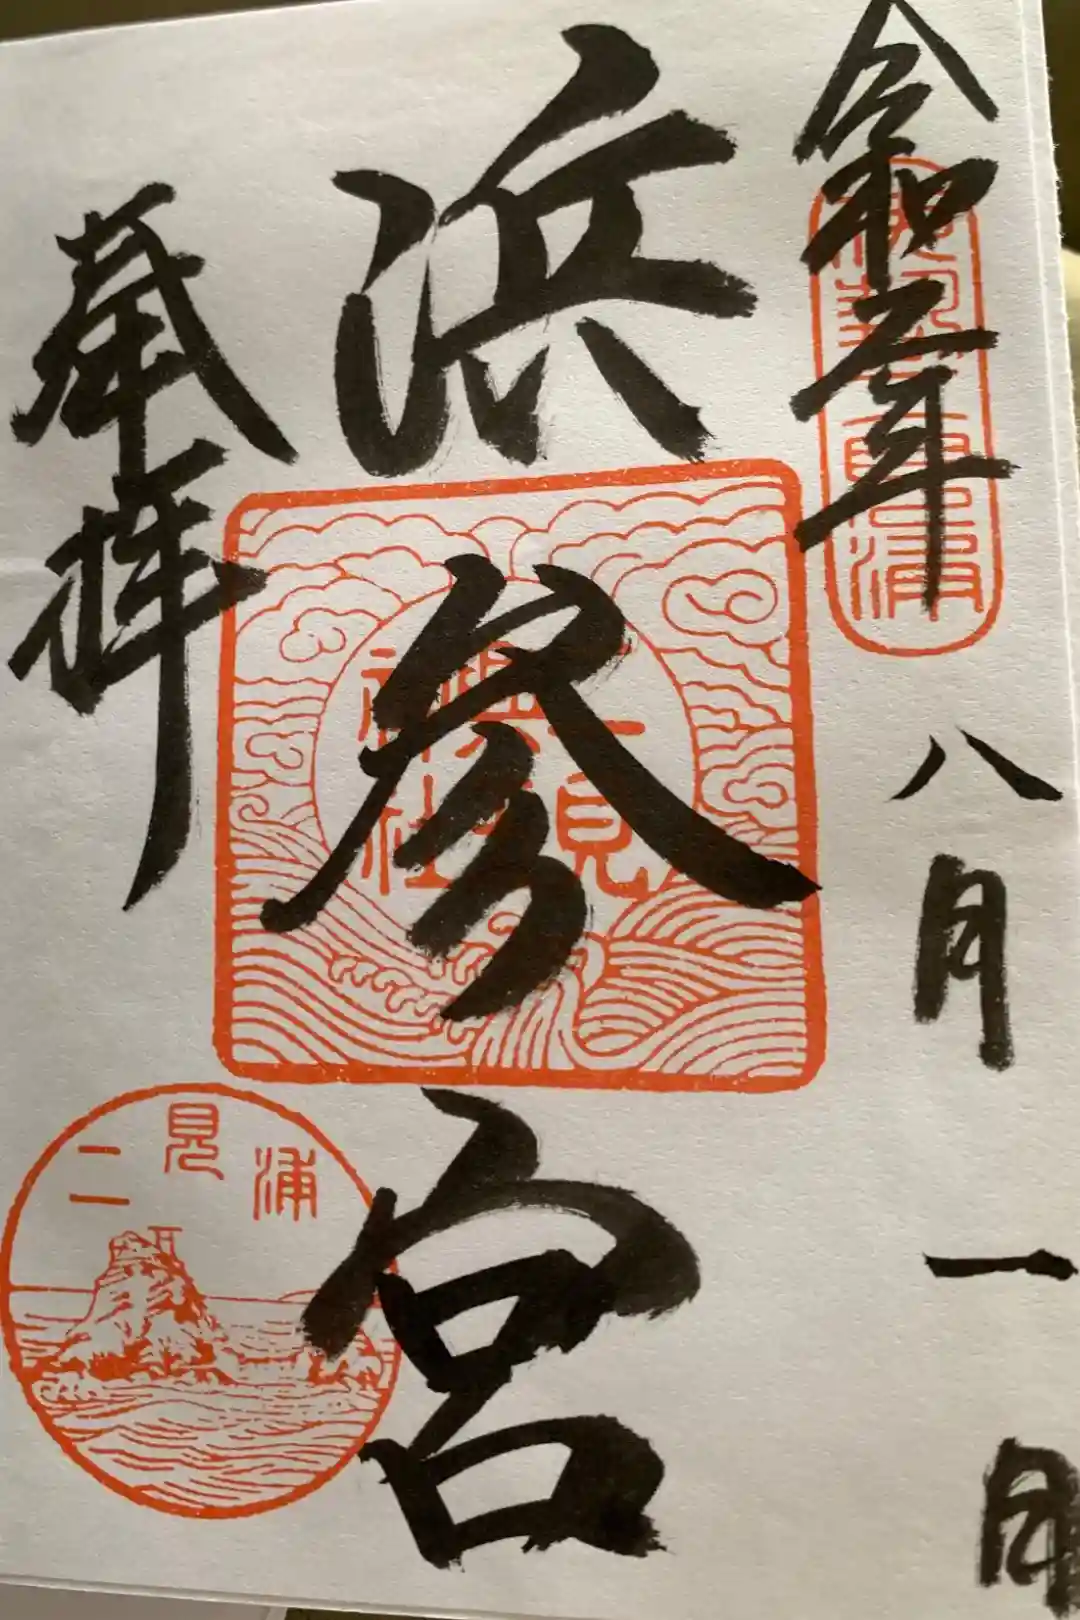 令和二年八月一日
浜参宮
奉拝
二見
興玉
神社
二見浦